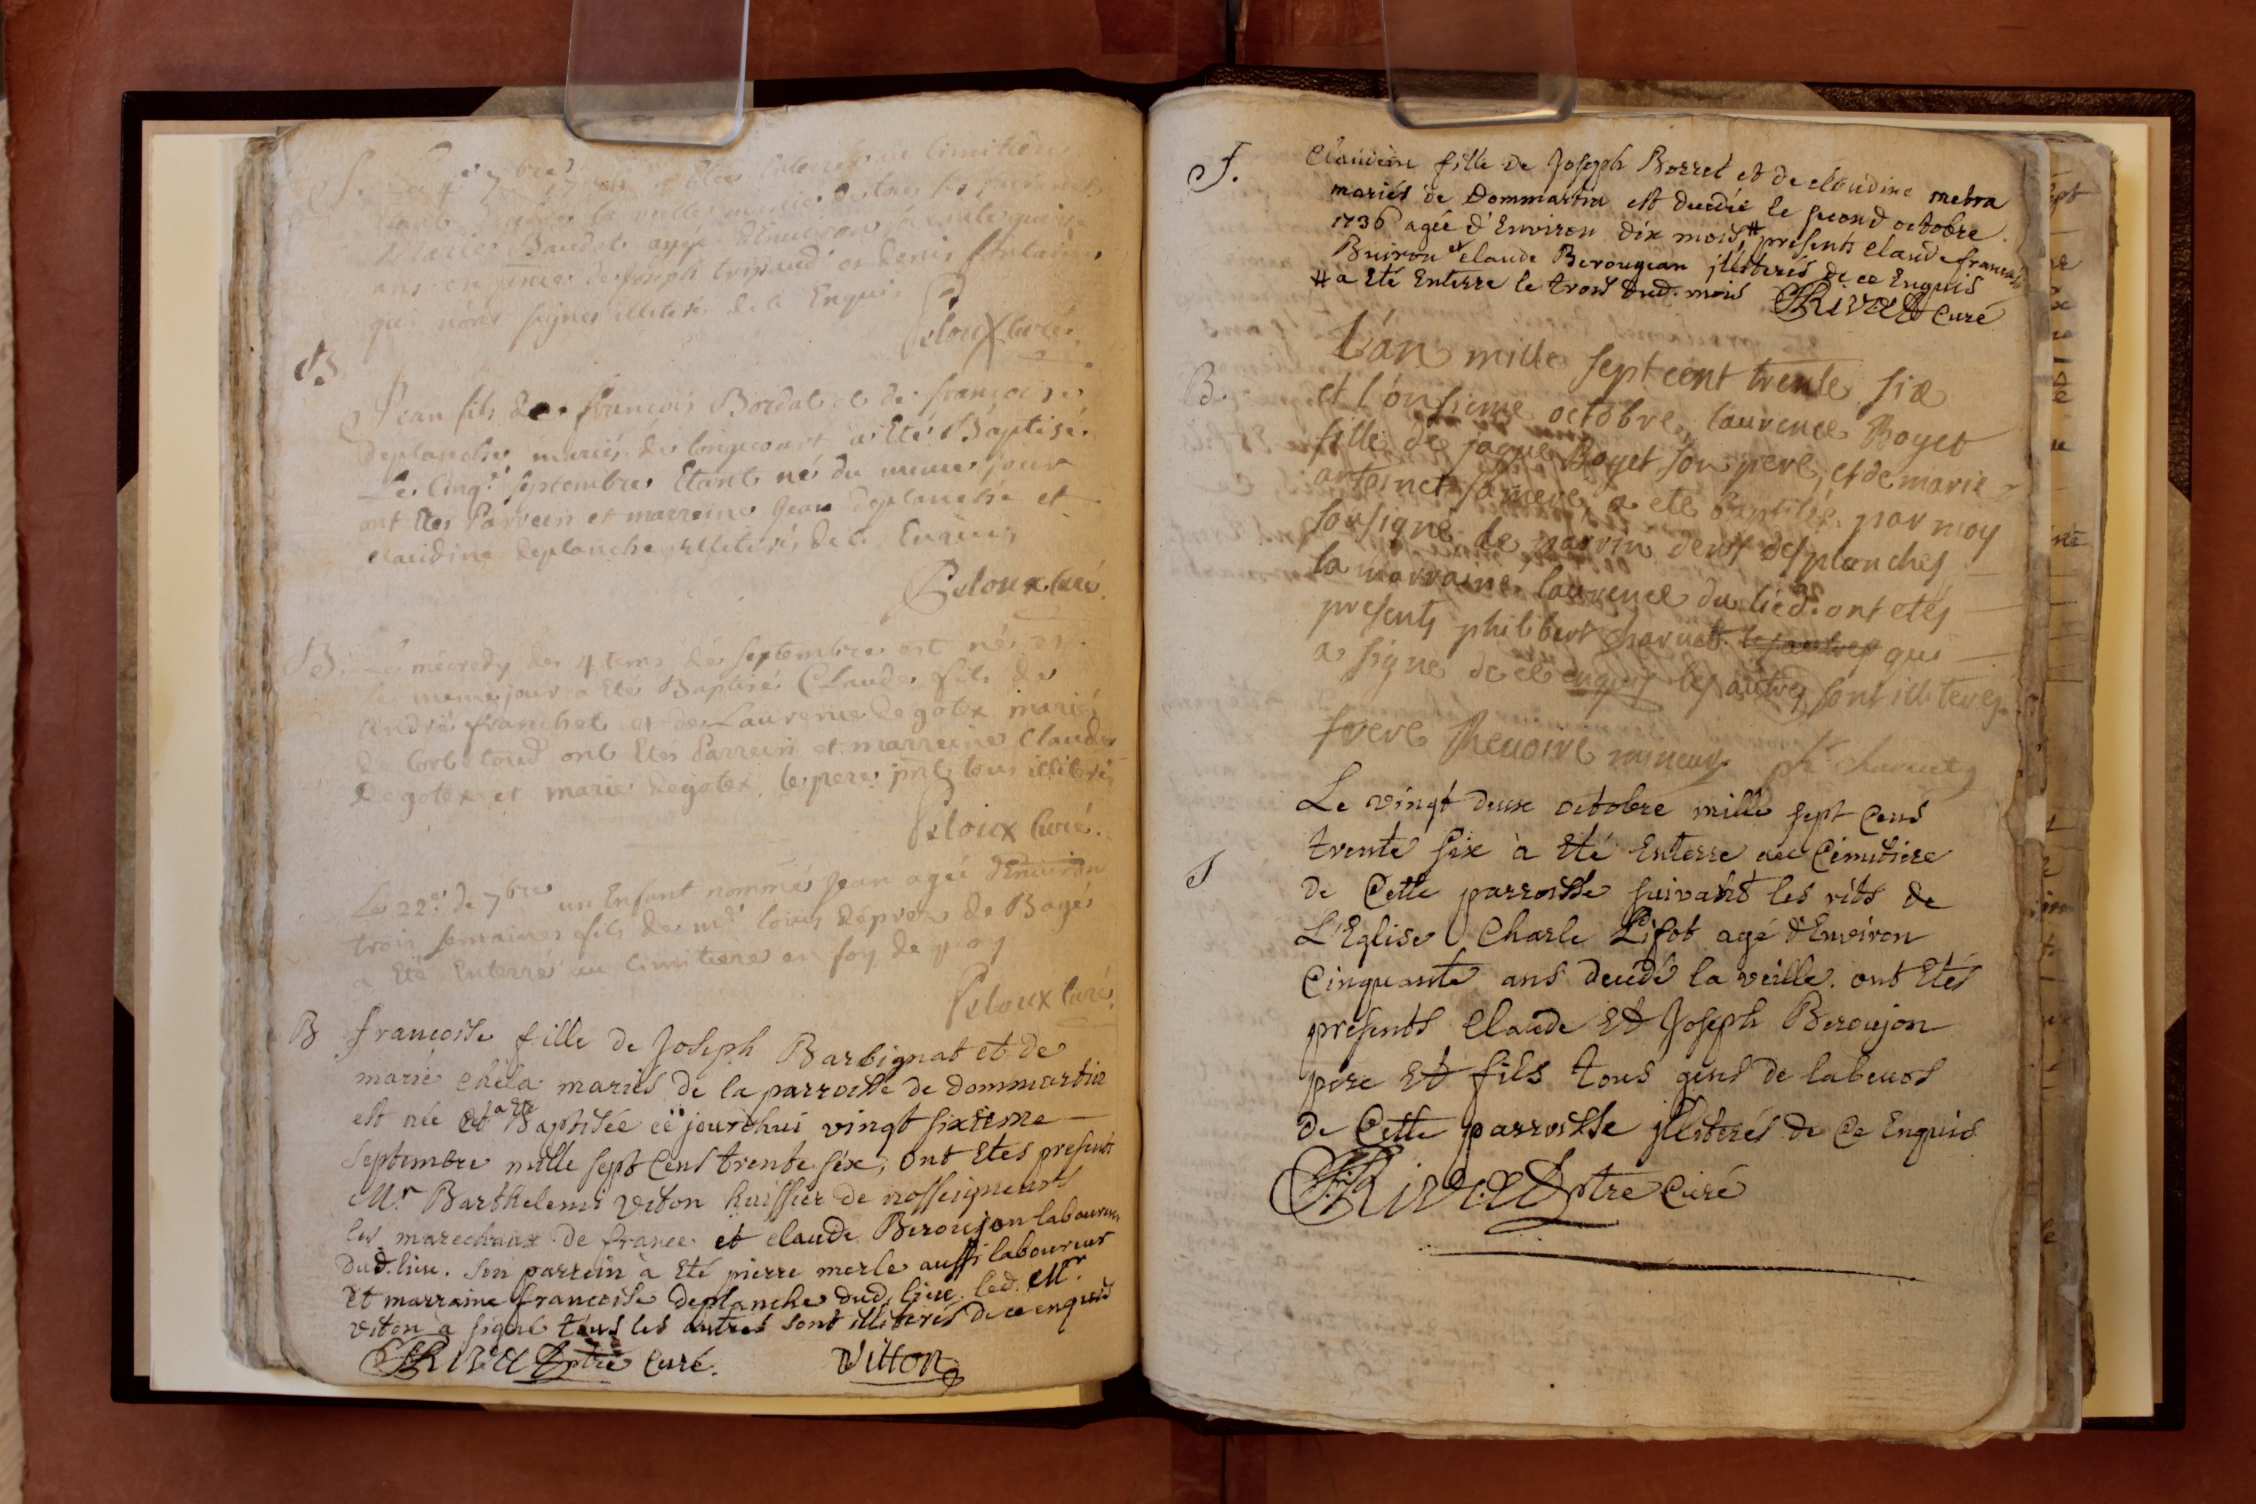 S. Le 4e 7bre
Marie Baudet agée d'environ
ans en presence de joseph tripaud et denis fontaine
qui n'ont signes illiteré de ce Enquis
Peloux Curé
B
Jean fils de françois Bordat et de françoise
deplanche mariés de longecourt a Eté Baptisé
Le Cinq.e septembre Etant né du meme jour
ont Etes Parrein et marreine Jean deplanche et
claudine deplanche illiterés de ce Enquis
Peloux Curé.
B. Le mécredy des 4 tems de septembre est né et
le meme jour a Eté Baptisé Claude fils de
André franchet et de Laurence Degotex mariés
De ont Etes Parrein et marreine Claude
Degotex et marie degotex, le pere pnt tous illiterés
Peloux Curé.
Le 22e de 7bre un Enfant nommé Jean ageé d'Environ
trois semaines fils de mr louis dépres de Bagé
a Eté Enterré au Cimitiere en foy de quoy
Peloux Curé
B francoise fille de Joseph Barbignat et de
marie chela mariés de la parroisse de Dommartin
est née et a Eté Baptisée ce jourdhui vingt sixieme
septembre mille sept Cens trente six, ont Etes presents
Mr Barthelemi Viton huissier de nosseigneurs
les marechaux de france et claude Beroujon laboureur
dud. lieu. son parrein à Eté pierre merle aussi laboureur
Et marraine francoise deplanche dud. lieu. led. Mr.
viton a signé tous les autres sont illiterés de ce enquis
Rivat ptre Curé. Vitton
S. Claudine fille de Joseph Borret et de claudine mebra
mariés de Dommartin est decedée le second octobre
1736 agée d'Environ dix mois # presents claude francois
Buiron et claude Berougean illiterés de ce Enquis
# a Eté Enterre le trois dud. mois Rivat Curé
B. L'an mille sept cent trente six
et l'onsieme octobre, laurence Boyet
fille de jaque Boyet son pere, et de marie
antoinet sa mere, a eté baptisée par moy
sousigné le parvin denis desplanches
la marraine, laurence du lied. ont etés
presents philibert charvet les autres qui
a signe de ce enquis les autres sont illiteres
frere Renoire mineur ph charvet
Le vingt deux octobre mille sept Cens
trente six à Eté Enterre au Cimitiere
S de Cette parroisse suivant les rits de
L'Eglise Charle Lifot agé d'Environ
Cinquante ans decedé la veille. ont Etés
presents Claude Et Joseph Beroujon
pere Et fils tous gens de labeurs
de Cette parroisse illiterés de Ce Enquis
Rivat ptre Curé